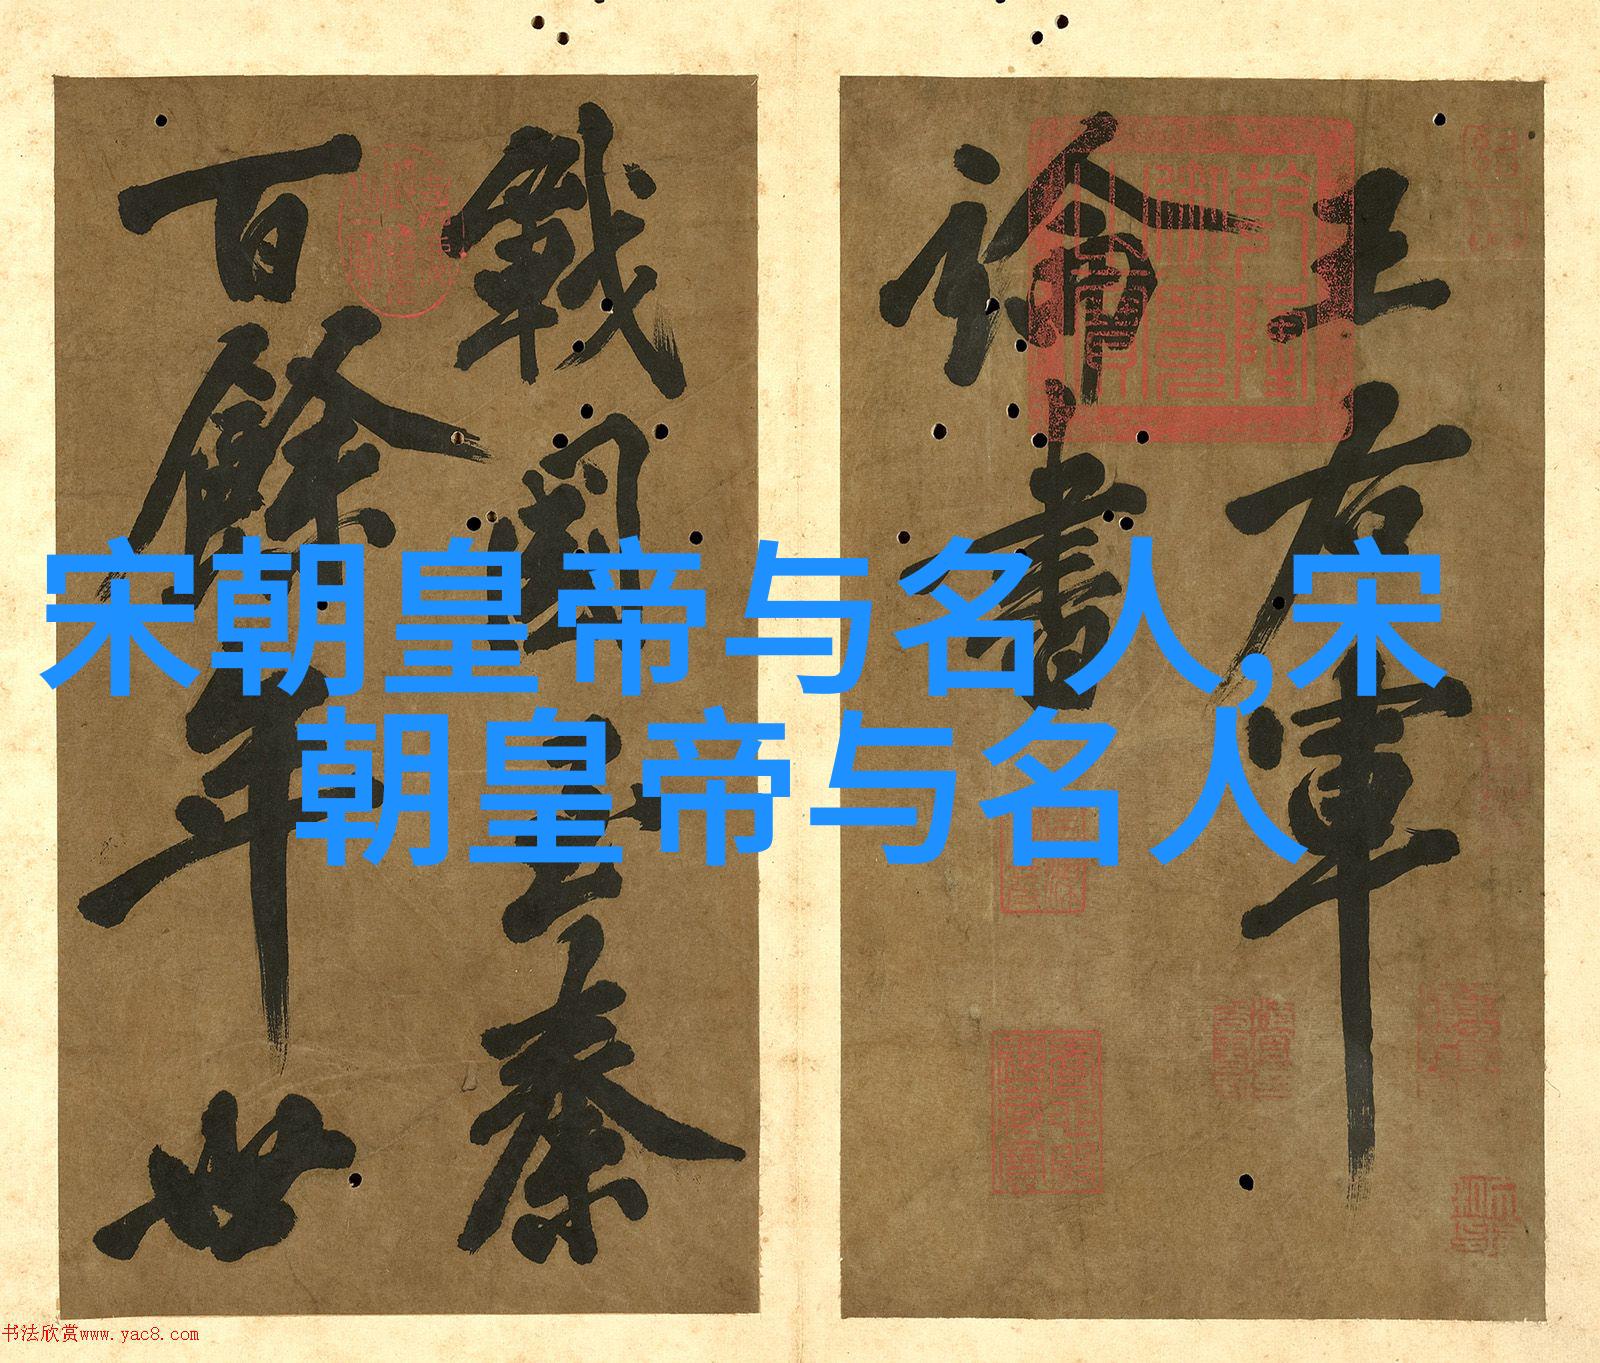 宋朝皇帝与名人,宋
朝皇帝与名人
王右軍
論書
戰國至秦
百餘年世
乾隆御覽之寶
书法欣赏www.yac8.com